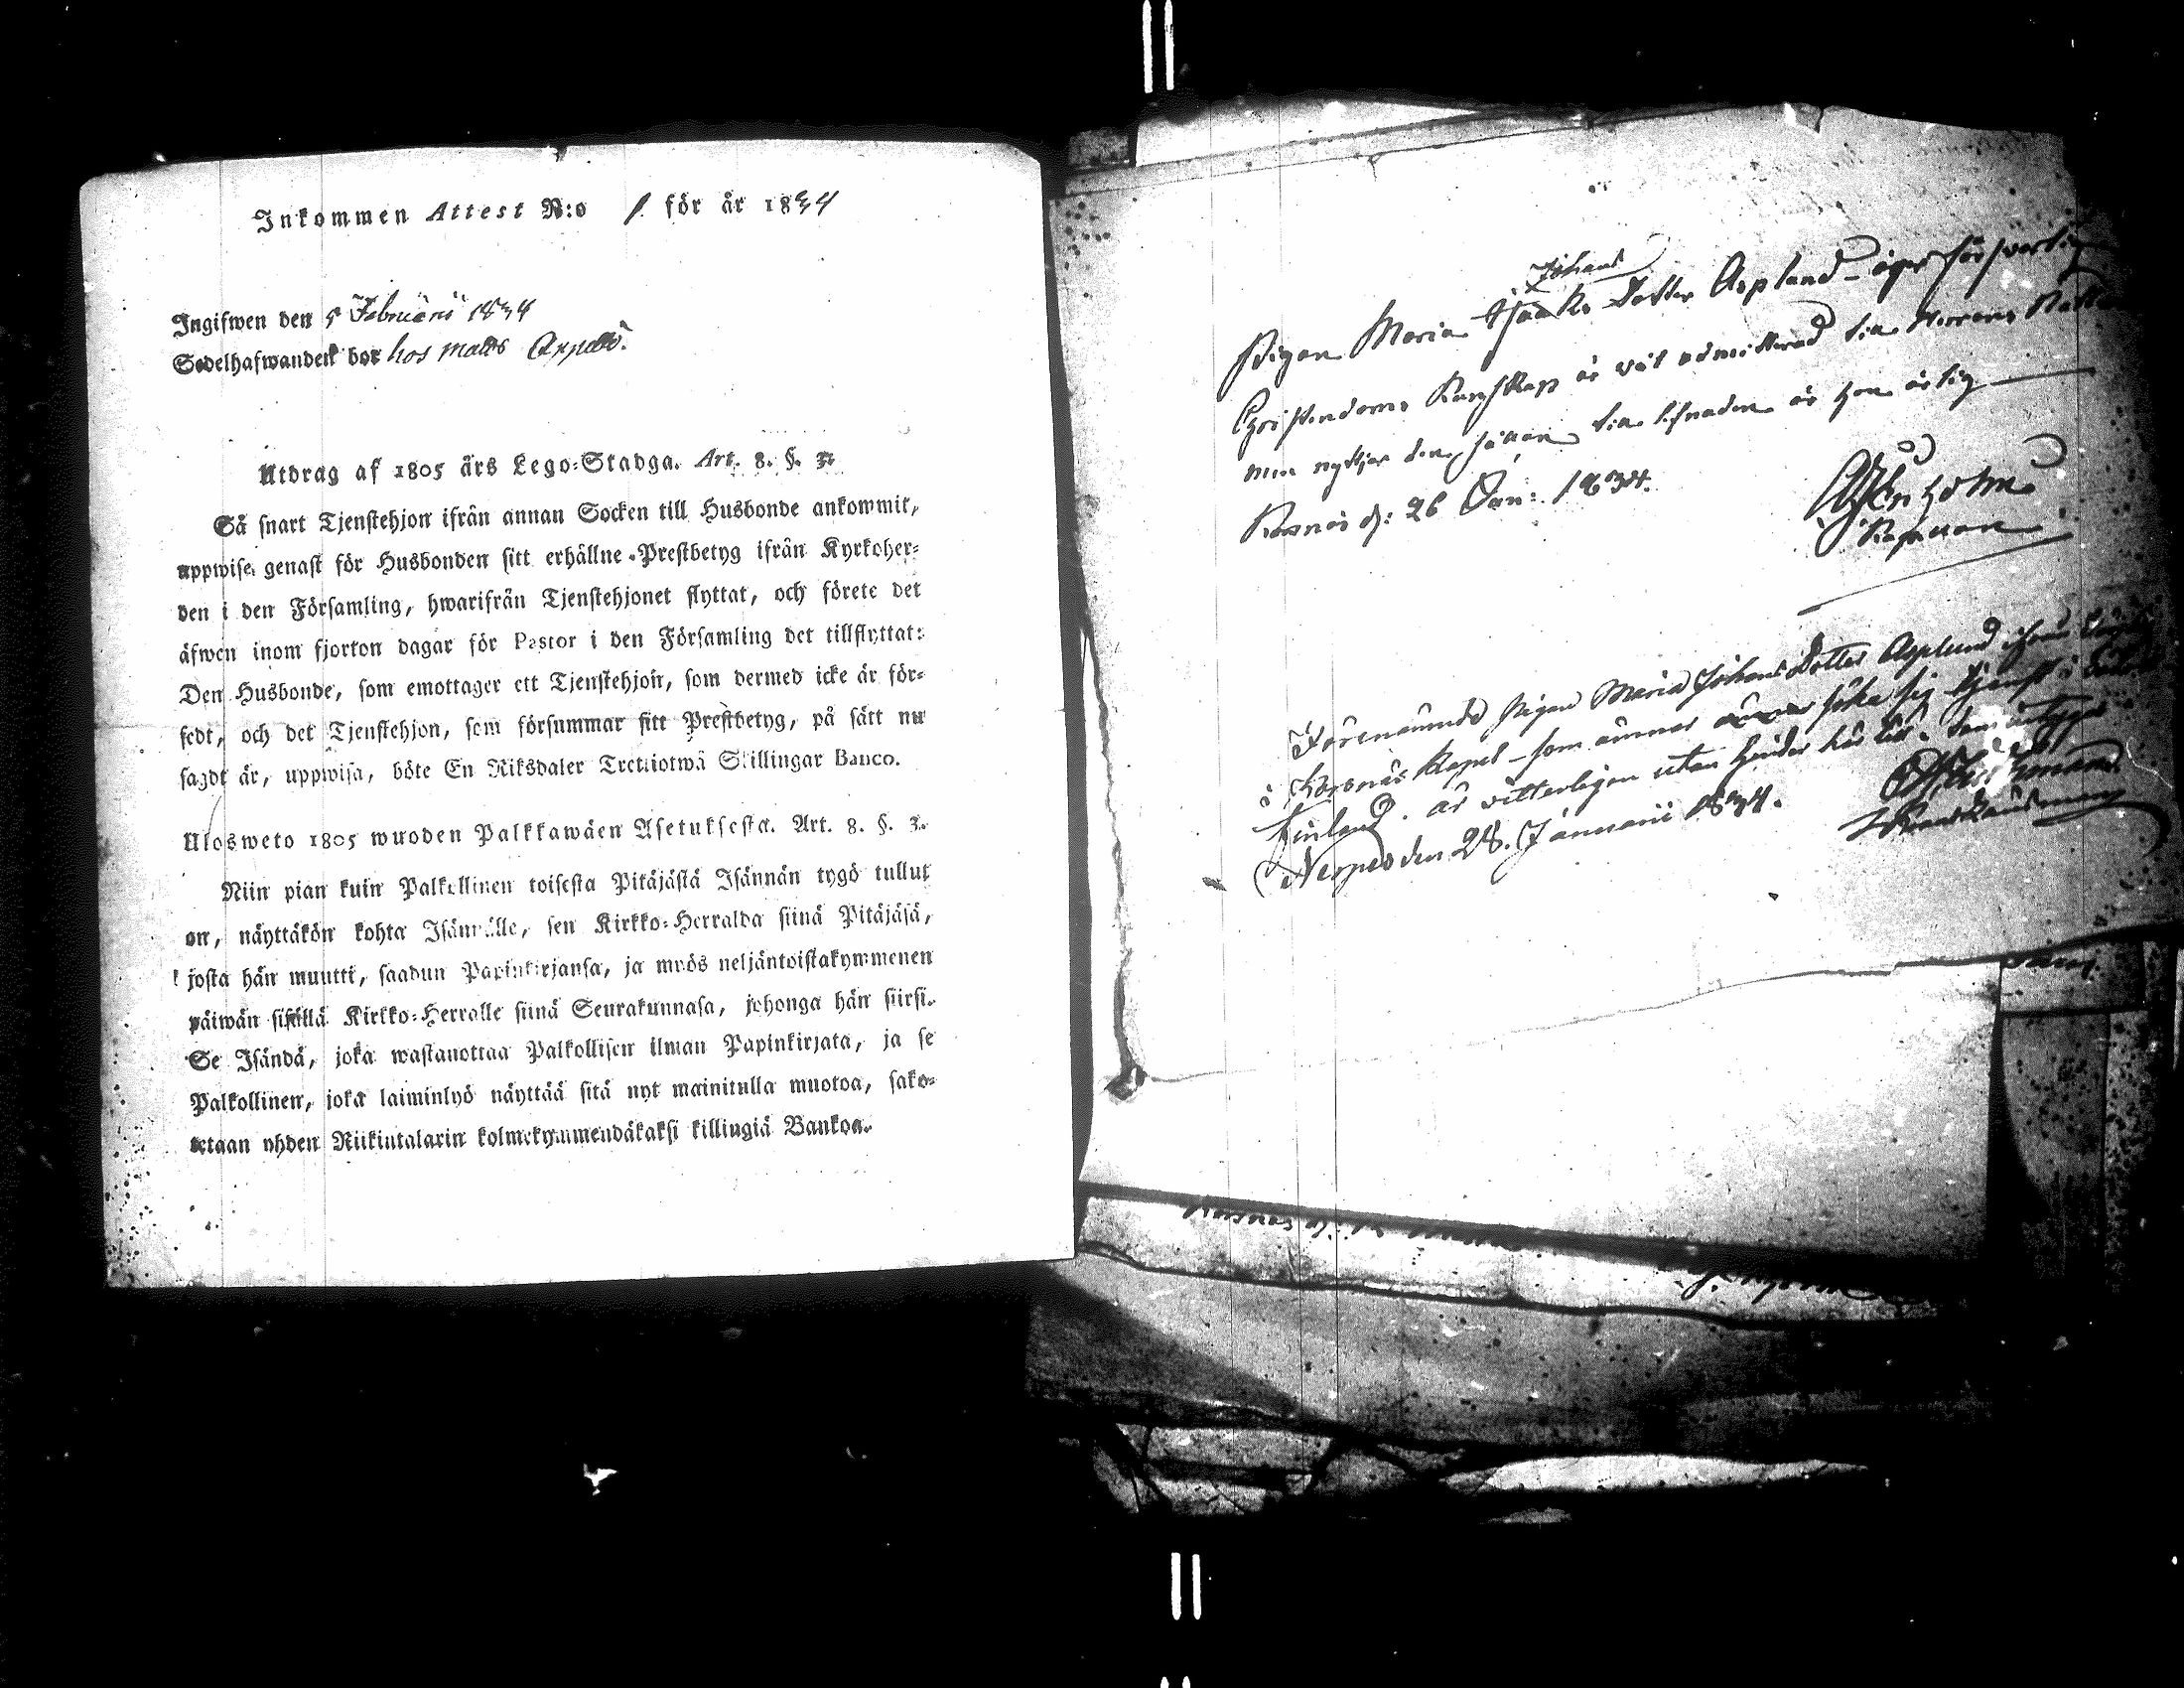 Inkommen Attest N:o 1 för år 1834
Ingifwen den 5 Februarii 1834
Sedelhafwanden bor hos Matts
Utdrag af 1805 års Lego-Stadga. Art. 8. §. 3.
Så snart Tjenstehjon ifrån annan Socken till Husbonde ankommit,
uppwise genast för Husbonden sitt erhållne Prestbetyg ifrån Kyrkoher-
den i den Församling, hwarifrån Tjenstehjonet flyttat, och förete det
äfwen inom fjorton dagar för Pastor i den Församling det tillflyttat:
Den Husbonde, som emottager ett Tjenstehjon, som dermed icke är för-
sedt, och det Tjenstehjon, som försummar sitt Prestbetyg, på sätt nu
sagdt är, uppwisa, böte En Riksdaler Trettiotwå Skillingar Banco.
Ulosweto 1805 wuoden Palkkawäen Asetuksesta. Art. 8. §. 3.
Niin pian kuin Palkollinen toisesta Pitäjästä Isännän tygö tullut
on, näyttäkön kohta Isännälle, sen Kirkko-Herralda siinä Pitäjäsä,
josta hän muutti, saadun Papinkirjansa, ja myös neljäntoistakymmenen
päiwän sisällä Kirkko-Herralle siinä Seurakunnasa, johonga hän siirsi.
Se Isändä, joka wastanottaa Palkollisen ilman Papinkirjata, ja se
Palkollinen, joka laiminlyö näyttää sitä nyt mainitulla muotoa, sako-
tetaan yhden Riikintalarin kolmekymmendäkaksi killingiä Bankoa.
Johans
Pigan Maria Isaks Dotter Asplund - äger försvarlig
Christendoms Kunskap är väl admitterad till Herrans
men nyttjar den sällan till lefnaden är hon ärlig
Korsnäs d: 26 Jan: 1834.
Förenämnde Pigan Maria Johans Dotter Asplund ifrån
i Korsnäs Kapel - som ämnar söka sig tjenst i
Finland. är vitterligen utan hinder här till. Som intygas
Nerpes den 28. Januarii 1834.
Korsnäs d: